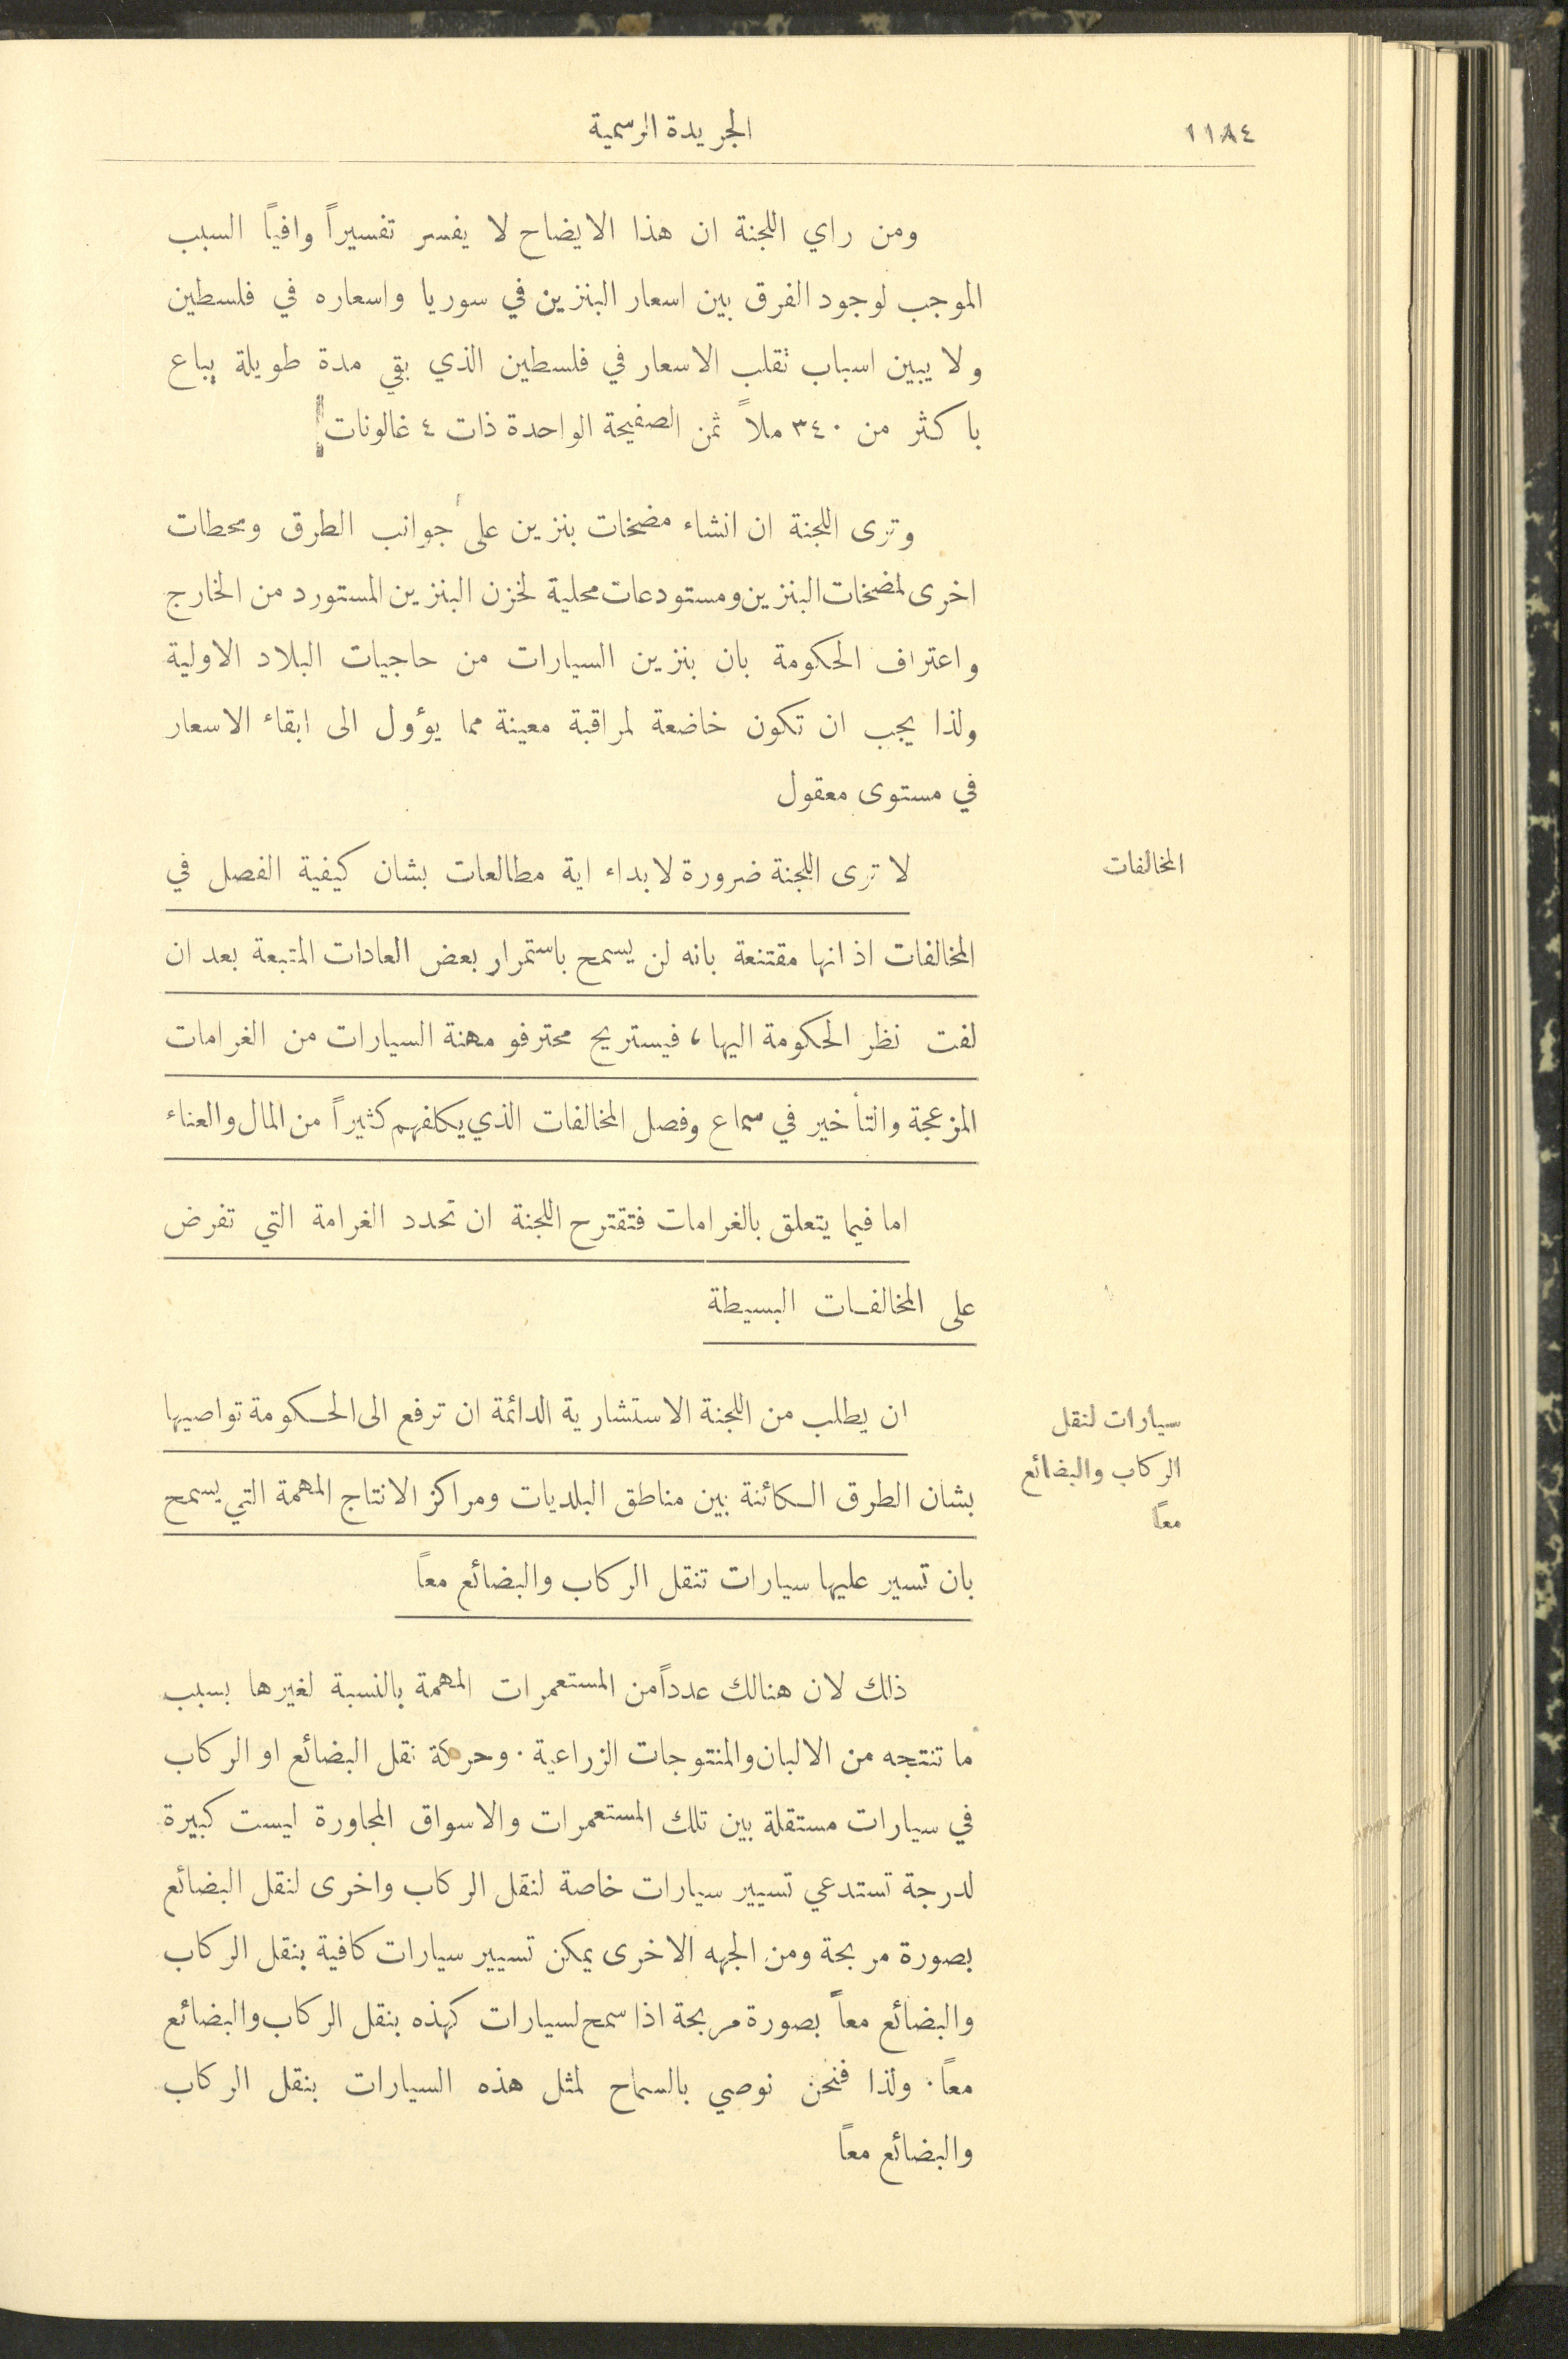 ١١٨٤
الجريدة الرسمية
ومن راي اللجنة ان هذا الايضاح لا يفسر تفسيراً وافياً السبب
الموجب لوجود الفرق بين اسعار البنزين في سوريا واسعاره في فلسطين
ولا يبين اسباب تقلب الاسعار في فلسطين الذي بقي مدة طويلة يباع
باكثر من ٣٤٠ ملاً ثمن الصفيحة الواحدة ذات ٤ غالونات
وترى اللجنة ان انشاء مضخات بنزين على جوانب الطرق ومحطات
اخرى لمضخات البنزين ومستودعات محلية لخزن البنزين المستورد من الخارج
واعتراف الحكومة بان بنزين السيارات من حاجيات البلاد الاولية
ولذا يجب ان تكون خاضعة لمراقبة معينة مما يوؤل الى ابقاء الاسعار
في مستوى معقول
المخالفات
لا ترى اللجنة ضرورة لابداء اية مطالعات بشان كيفية الفصل في
المخالفات اذ انها مقتنعة بانه لن يسمح باستمرار بعض العادات المتبعة بعد ان
لفت نظر الحكومة اليها، فيستريح محترفو مهنة السيارات من الغرامات
المزعجة والتأخير في سماع وفصل المخالفات الذي يكلفهم كثيراً من المال والعناء
اما فيما يتعلق بالغرامات فتقترح اللجنة ان تحدد الغرامة التي تفرض
على المخالفات البسيطة
سيارات لنقل
الركاب والبضائع
معاً
ان يطلب من اللجنة الاستشارية الدائمة ان ترفع الى الحكومة تواصيها
بشان الطرق الكائنة بين مناطق البلديات ومراكز الانتاج المهمة التي يسمح
بان تسير عليها سيارات تنقل الركاب والبضائع معاً
ذلك لان هنالك عدداً من المستعمرات المهمة بالنسبة لغيرها بسبب
ما تنتجه من الالبان والمنتوجات الزراعية. وحركة نقل البضائع او الركاب
في سيارات مستقلة بين تلك المستعمرات والاسواق المجاورة ليست كبيرة
لدرجة تستدعي تسيير سيارات خاصة لنقل الركاب واخرى لنقل البضائع
بصورة مربحة ومن الجهه الاخرى يمكن تسيير سيارات كافية بنقل الركاب
والبضائع معاً بصورة مربحة اذا سمح لسيارات كهذه بنقل الركاب والبضائع
معاً. ولذا فنحن نوصي بالسماح لمثل هذه السيارات بنقل الركاب
والبضائع معاً